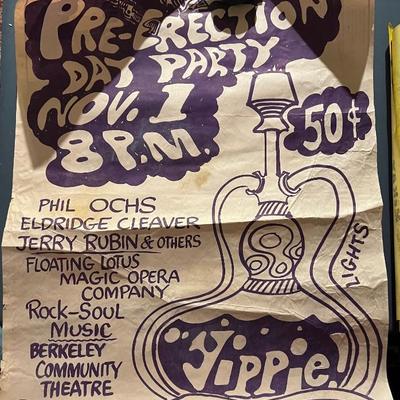 PRE-ERECTION
DAY PARTY
NOV. 1
8 P.M.
50¢
PHIL OCHS
ELDRIDGE CLEAVER
JERRY RUBIN & OTHERS
FLOATING LOTUS
MAGIC OPERA
COMPANY
ROCK-SOUL
MUSIC
BERKELEY
COMMUNITY
THEATRE
LIGHTS
Yippie!